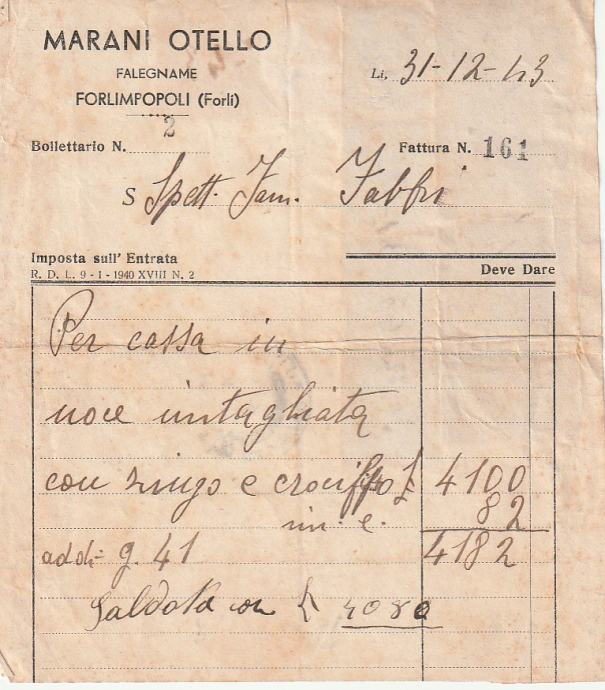 MARANI OTELLO
FALEGNAME
FORLIMPOPOLI (Forlì)
Li, 31-12-43
Bollettario N. 2
Fattura N. 161
S Spett. Fam. Fabbri
Imposta sull' Entrata
R. D. L. 9 - 1 - 1940 XVIII N. 2
Deve Dare
Per cassa in
noce intagliata
con zingo e crocifisso £ 4100
im. e. 82
addì g. 41 4182
Saldata con £ 4080